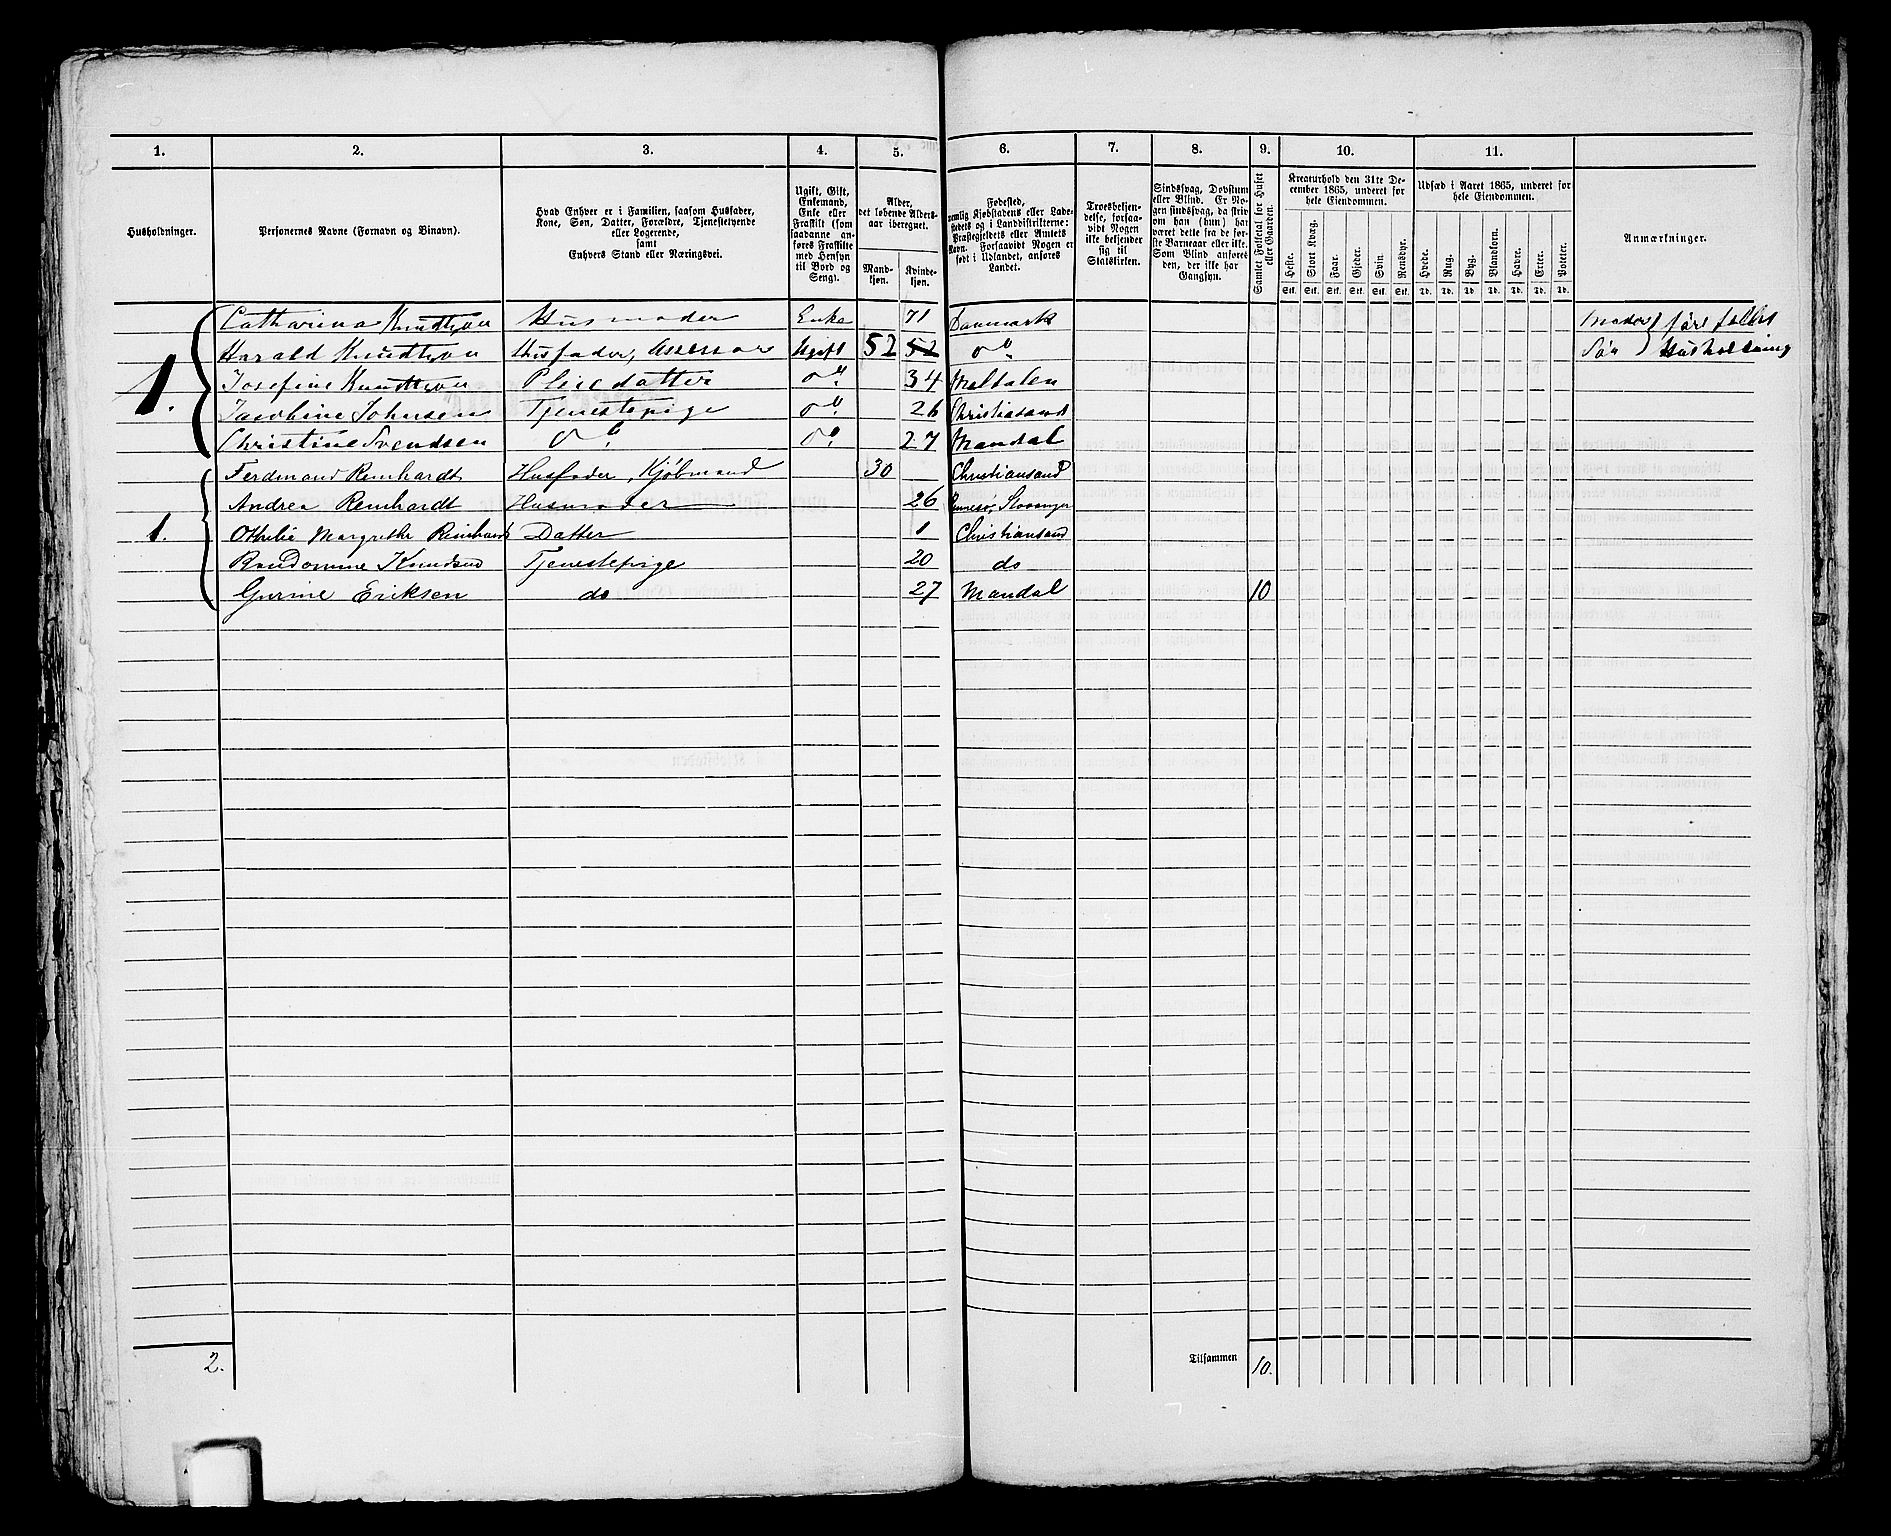 1. 2. 3. 4. 5. 6. 7. 8. 9. 10. 11.
Husholdninger.
Personernes Navne (Fornavn og Binavn).
Hvad Enhver er i Familien, saasom Husfader,
Kone, Søn, Datter, Forældre, Tjenestetyende
eller Logerende,
samt
Enhvers Stand eller Næringsvei.
Ugift, Gift,
Enkemand,
Enke eller
Fraskilt (som
saadanne an-
føres Fraskilte
med Hensyn
til Bord og
Seng).
Alder,
det løbende Alders-
aar iberegnet.
Mand-
kjøn.
Kvinde-
kjøn.
Fødested,
nemlig Kjøbstadens eller Lade-
stedets og i Landdistrikterne:
Præstegjeldets eller Amtets
Navn. Forsaavidt Nogen er
født i Udlandet, anføres
Landet.
Troesbekjen-
delse, forsaa-
vidt Nogen
ikke bekjender
sig til
Statskirken.
Sindssvag, Døvstum
eller Blind. Er No-
gen sindssvag, da skriv
om han (hun) har
været dette fra de før-
ste Barneaar eller ikke.
Som Blind anføres
den, der ikke har
Gangsyn.
Samlet Folketal for Huset
eller Gaarden.
Kreaturhold den 31te De-
cember 1865, underet for
hele Eiendommen.
Heste. Stort Kvæg. Faar. Gjeder. Svin. Rensdyr.
Stk. Stk. Stk. Stk. Stk. Stk.
Udsæd i Aaret 1865, underet for
hele Eiendommen.
Hvede. Rug. Byg. Blandkorn. Havre. Erter. Poteter.
Td. Td. Td. Td. Td. Td. Td.
Anmærkninger.
Catharina Knudtzon Husmoder Enke 71 Danmark Moder
Harald Knudtzon Husfader, Assessor Ugift 52 52 do Søn
føre fælles
Husholdning
1. Josefine Knudtzon Pleiedatter do 34 Meldalen
Jacobine Johnsen Tjenestepige do 26 Christiansand
Christine Svendsen do do 27 Mandal
Ferdinand Reinhardt Husfader, Kjøbmand 30 Christiansand
Andrea Reinhardt Husmoder 26 Rennesø, Stavanger
1. Othilie Margrethe Reinhardt Datter 1 Christiansand
Knudsen Tjenestepige 20 do
Gurine Eriksen do 27 Mandal 10
2. Tilsammen 10.